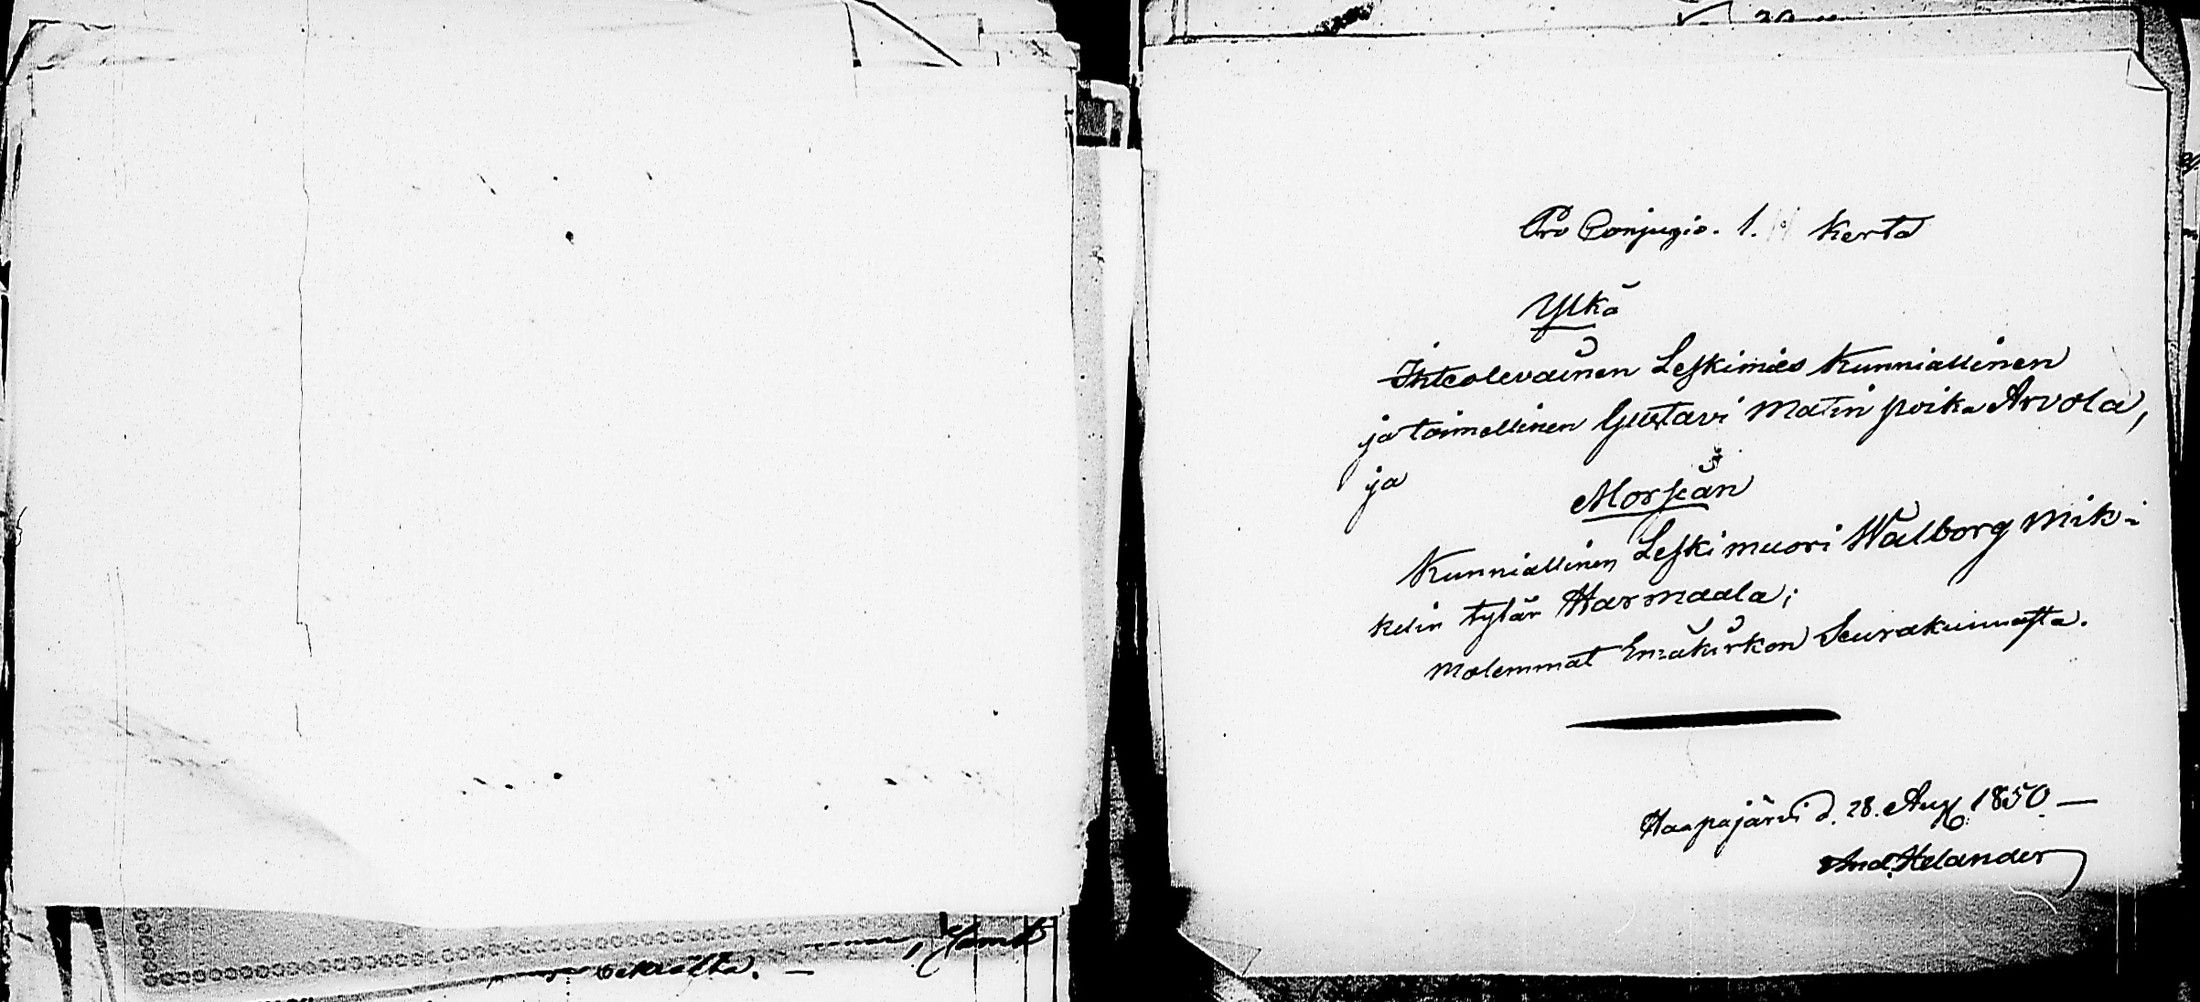 Pro Conjugio. 1. Kerta
Ylkä
Ihteolevainen Leskimies Kunniallinen
ja toimellinen Gustavi Matin poika Arvola,
ja Morsiän
Kunniallinen Leski muori Walborg Mik-
kelin tytär Harmaala;
Molemmat Emäkirkon Seurakunnasta.
Haapajärvi d. 28. Aug. 1850 —
And. Helander